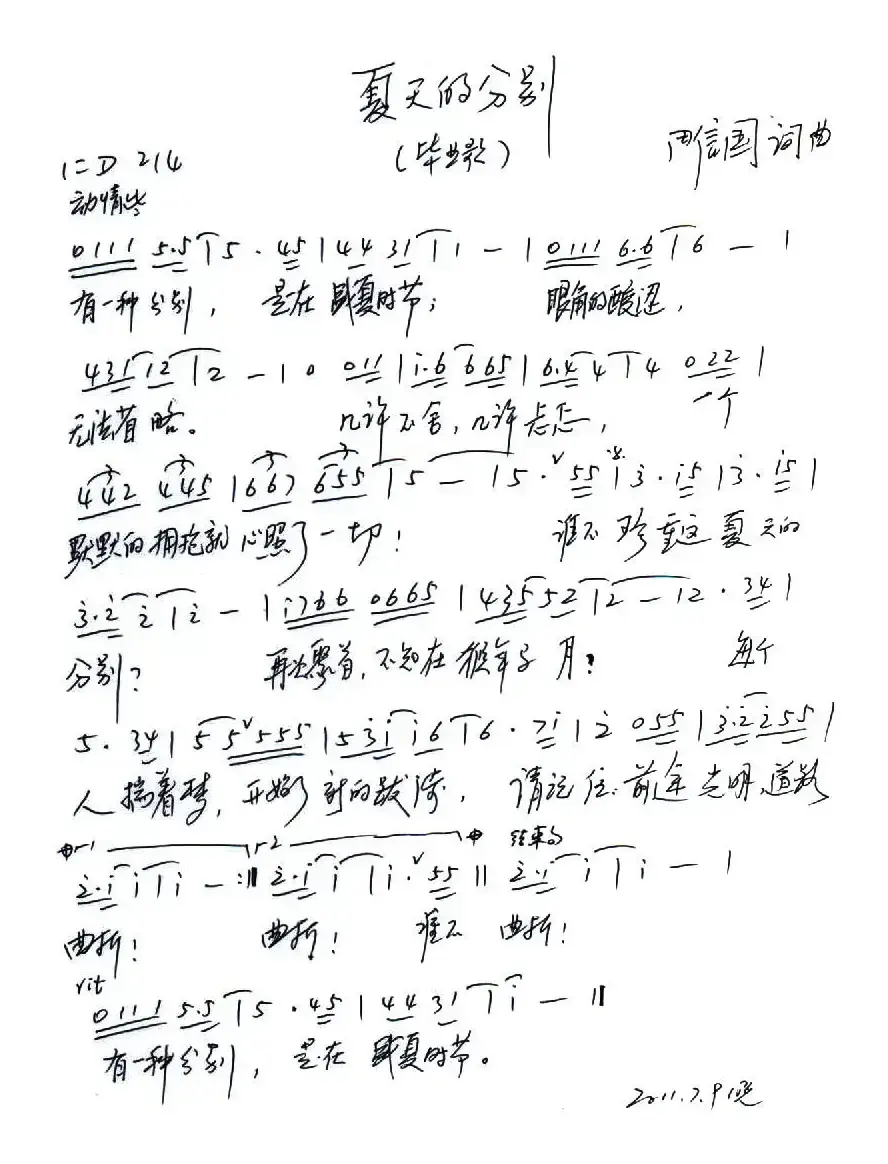 夏天的分别
(毕业歌)
1=D 2/4
信国 词曲
动情地
0111 5.5 | 5 . 45 | 44 31 | 1 - | 0111 6.6 | 6 - |
有一种分别， 是在盛夏时节； 眼角的酸涩，
431 12 | 2 - | 0 011 | i.6 665 | 6.4 4 | 4 022 |
无法省略。 几许不舍，几许忐忑， 一个
442 445 | 667 655 | 5 - | 5 . 55 | 3 . i5 | 3 . i5 |
默默的拥抱就心照了一切！ 谁不珍重这夏天的
3.2 2 | 2 - | i766 0665 | 435 52 | 2 - | 2 . 34 |
分别？ 再次聚首，不知在猴年子月？ 每个
5 . 34 | 5 5 555 | 53i i6 | 6 . 7i | 2 055 | 3.2 255 |
人揣着梦，开始了新的跋涉， 请记住：前途光明，道路
1 2 结束句
2.i i | i - :‖ 2.i i | i . 55 ‖ 2.i i | i - |
曲折！ 曲折！ 谁不 曲折！
rit
0111 5.5 | 5 . 45 | 44 31 | i - ‖
有一种分别， 是在盛夏时节。
2011.7.9晚